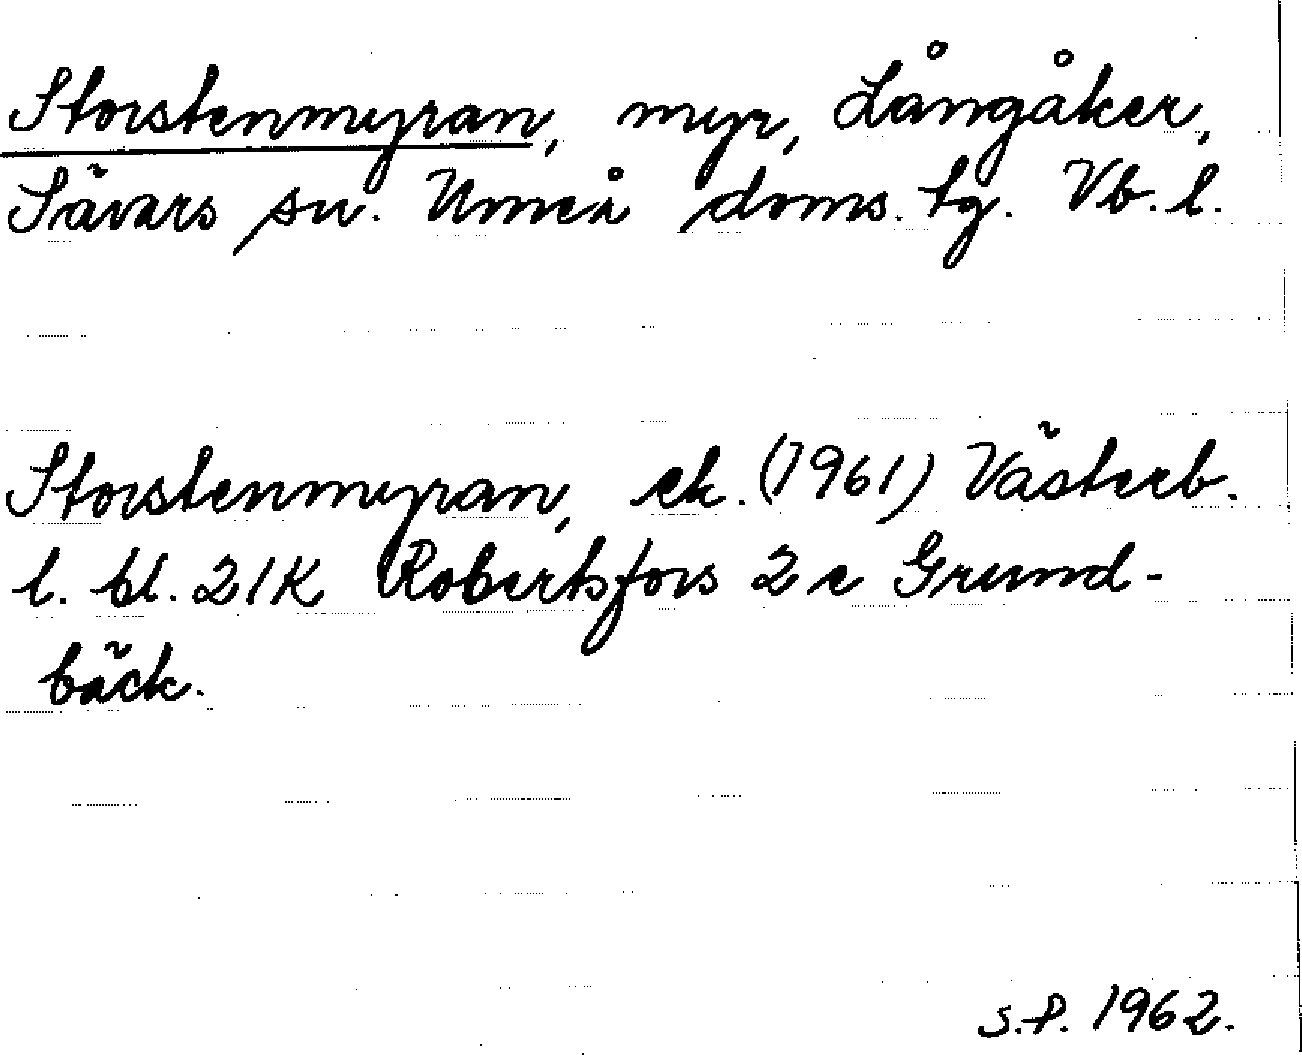 Storstenmyran, myr, Långåker,
Sävars sn. Umeå doms. tg. Vb. l.
Storstenmyran, ek. (1961) Västerb.
l. bl. 21K Robertsfors 2 e Grund-
bäck.
S.P. 1962.